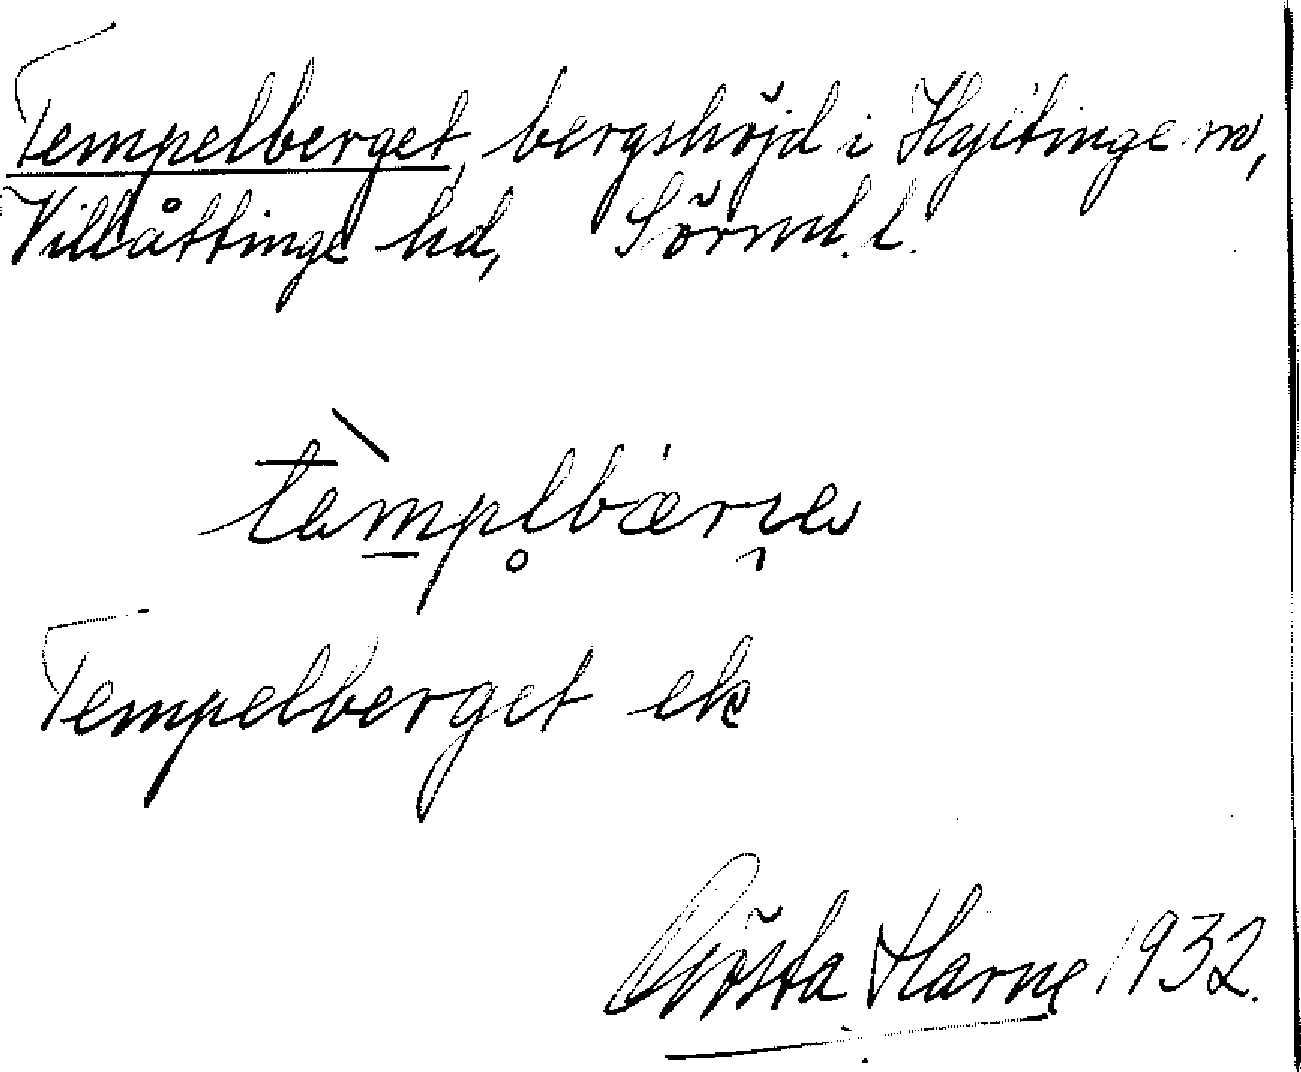 Tempelberget, bergshöjd i Hyltinge sn,
Villåttinge hd, Sörml. l.
tèmpl̥bærɪe
Tempelberget ek
Gösta Harne 1932.